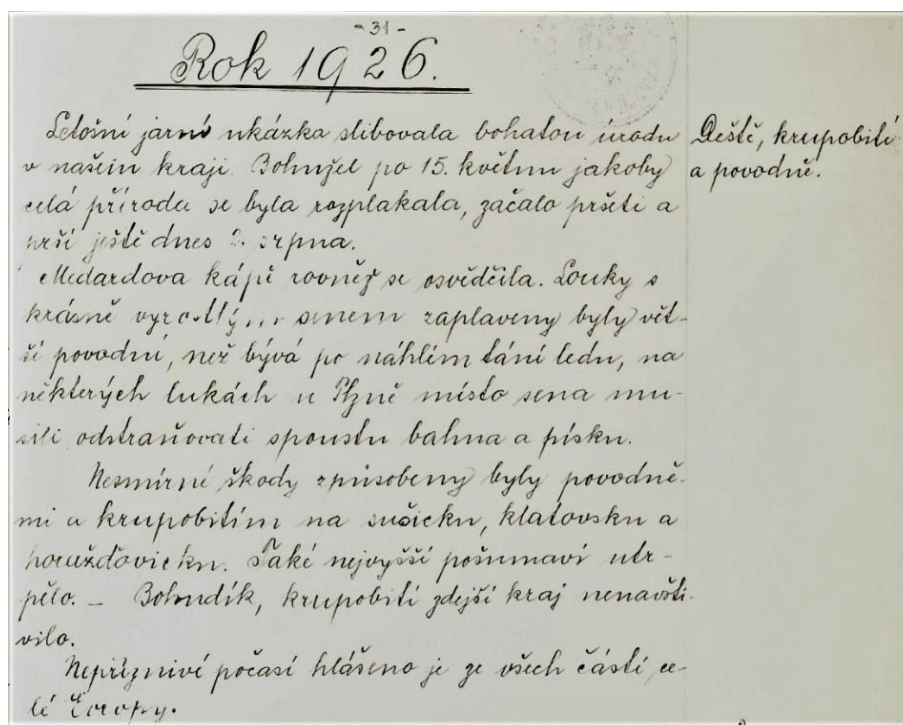 - 31 -
Rok 1926.
Letošní jarní ukázka slibovala bohatou úrodu
v našem kraji. Bohužel po 15. květnu jakoby
celá příroda se byla rozplakala, začalo pršeti a
prší ještě dnes 2. srpna.
Medardova kápě rovněž se osvědčila. Louky s
krásně senem zaplaveny byly vět-
ší povodní, než bývá po náhlém tání ledu, na
některých lukách u Plzně místo sena mu-
sili odstraňovati spoustu bahna a písku.
Nesmírné škody způsobeny byly povodně-
mi a krupobitím na sušicku, klatovsku a
horažďovicku. Také nejvyšší pošumaví utr-
pělo. - Bohudík, krupobití zdejší kraj nenavští-
vilo.
Nepříznivé počasí hlášeno je ze všech částí ce-
lé Evropy.
Deště, krupobití
a povodně.